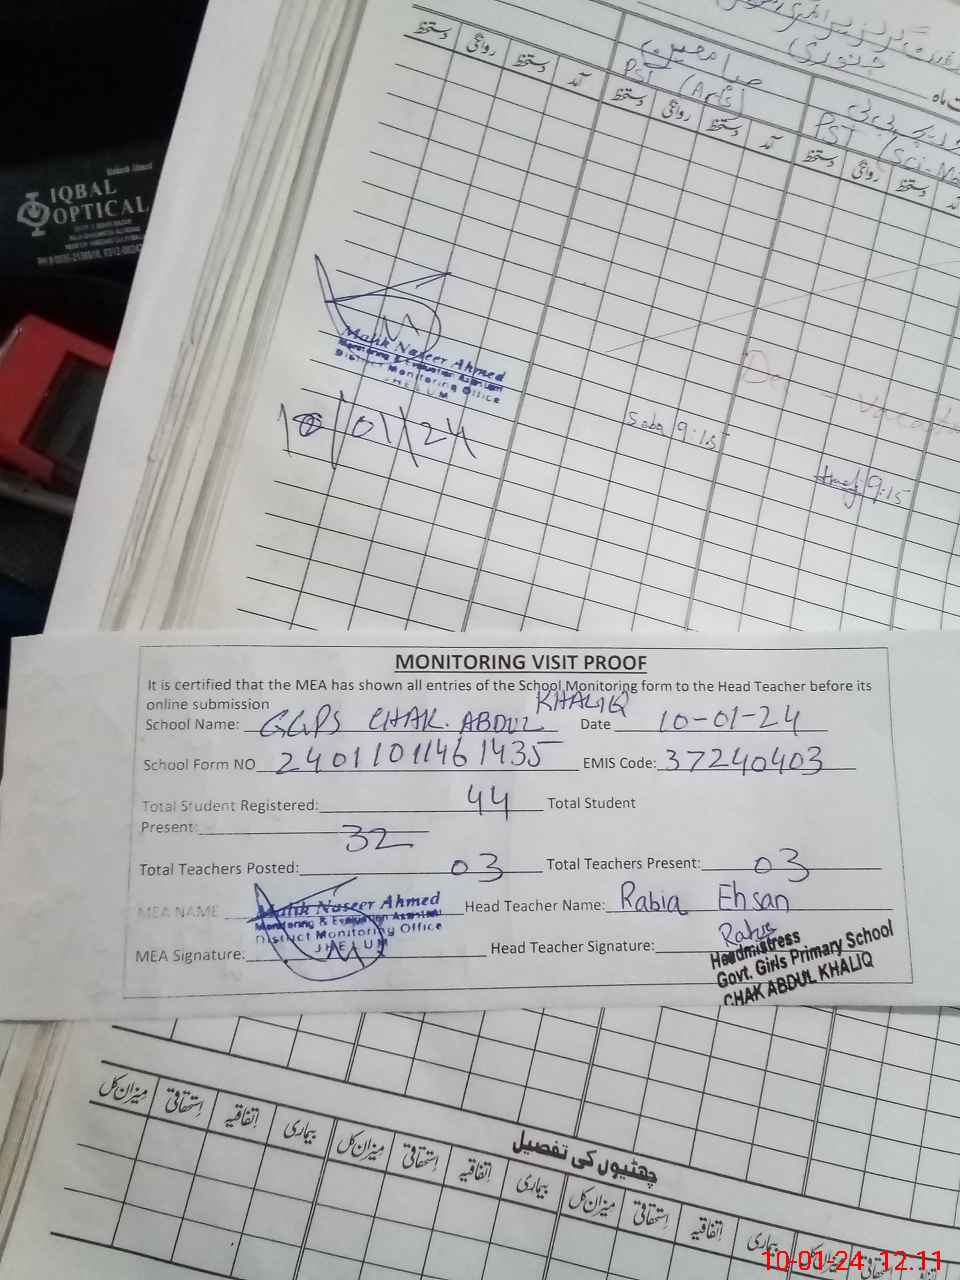 دستخط روانگی دستخط آمد دستخط روانگی دستخط آمد دستخط روانگی دستخط آمد
جنوری
PST (Arts)
PST (Sci-Ma
IQBAL
OPTICAL
Malik Naseer Ahmed
Monitoring & Evaluation Assistant
District Monitoring Office
JHELUM
10/01/24
Saba 9:15
9:15
MONITORING VISIT PROOF
It is certified that the MEA has shown all entries of the School Monitoring form to the Head Teacher before its
online submission
School Name: GGPS CHAK. ABDUL KHALIQ Date 10-01-24
School Form NO 24011011461435 EMIS Code: 37240403
Total Student Registered: 44 Total Student
Present: 32
Total Teachers Posted: 03 Total Teachers Present: 03
MEA NAME Malik Naseer Ahmed Head Teacher Name: Rabia Ehsan
Monitoring & Evaluation Assistant
District Monitoring Office
JHELUM
MEA Signature: Head Teacher Signature: Rabia
Headmistress
Govt. Girls Primary School
CHAK ABDUL KHALIQ
چھٹیوں کی تفصیل
میزان کل استحقاقی اتفاقیہ بیماری میزان کل استحقاقی اتفاقیہ بیماری میزان کل استحقاقی اتفاقیہ بیماری میزان کل استحقاقی
10-01-24 12:11